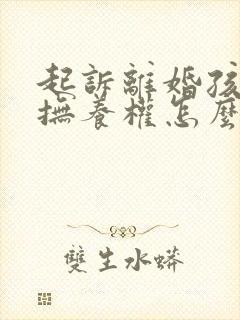 起訴離婚孩
撫養權怎麼
雙生水蟒